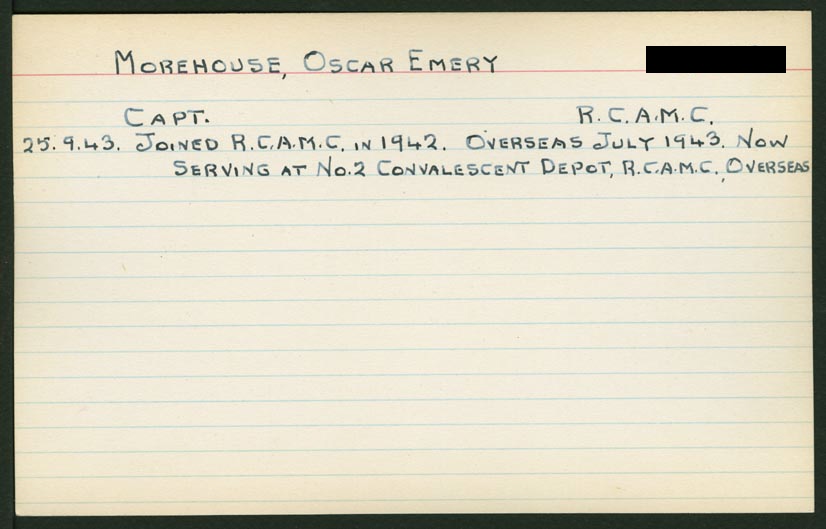 MOREHOUSE, OSCAR EMERY
CAPT. R.C.A.M.C.
25.9.43. JOINED R.C.A.M.C. IN 1942. OVERSEAS JULY 1943. NOW
SERVING AT NO.2 CONVALESCENT DEPOT, R.C.A.M.C., OVERSEAS